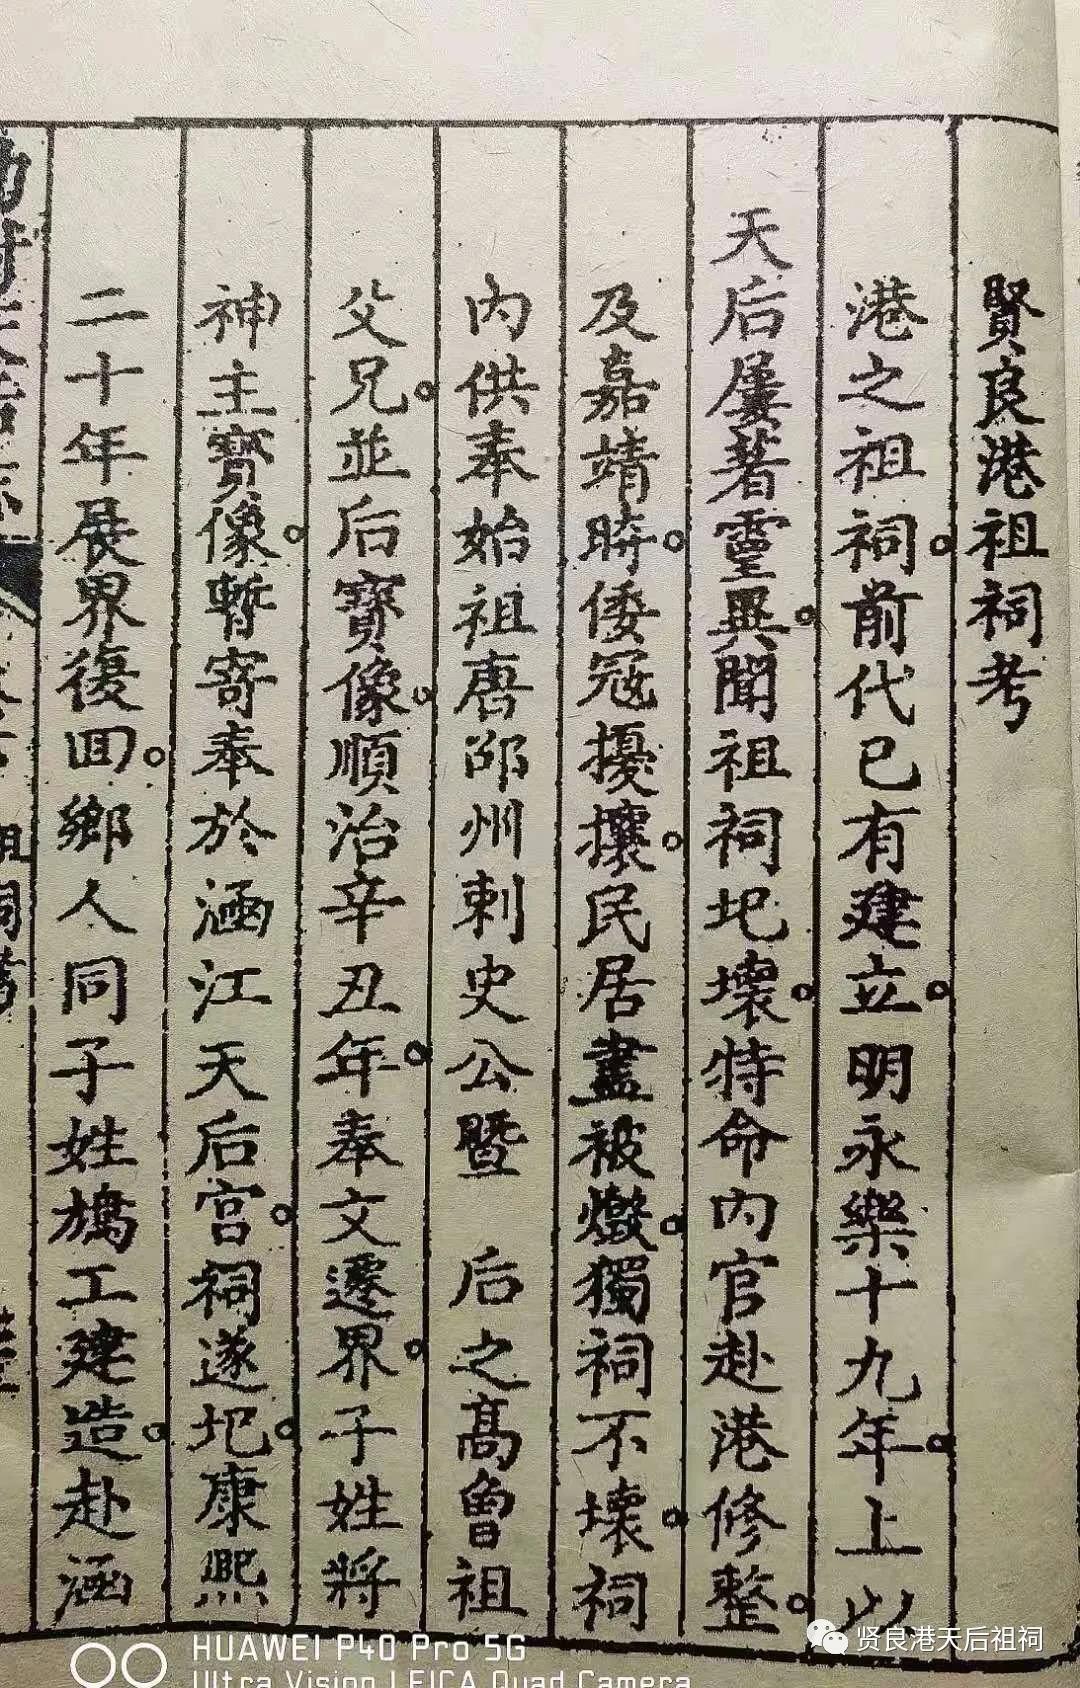 賢良港祖祠考
港之祖祠。前代已有建立。明永樂十九年。上以
天后屢著靈異。聞祖祠圮壞。特命內官赴港修整。
及嘉靖時。倭冦擾攘。民居盡被燬。獨祠不壞。祠
內供奉始祖唐邵州刺史公暨　后之高曾祖
父兄。並后寶像。順治辛丑年。奉文遷界。子姓將
神主寶像。暫寄奉於涵江天后宮。祠遂圮。康熙
二十年展界復回。鄉人同子姓鳩工建造。赴涵
HUAWEI P40 Pro 5G
Ultra Vision LEICA Quad Camera
贤良港天后祖祠